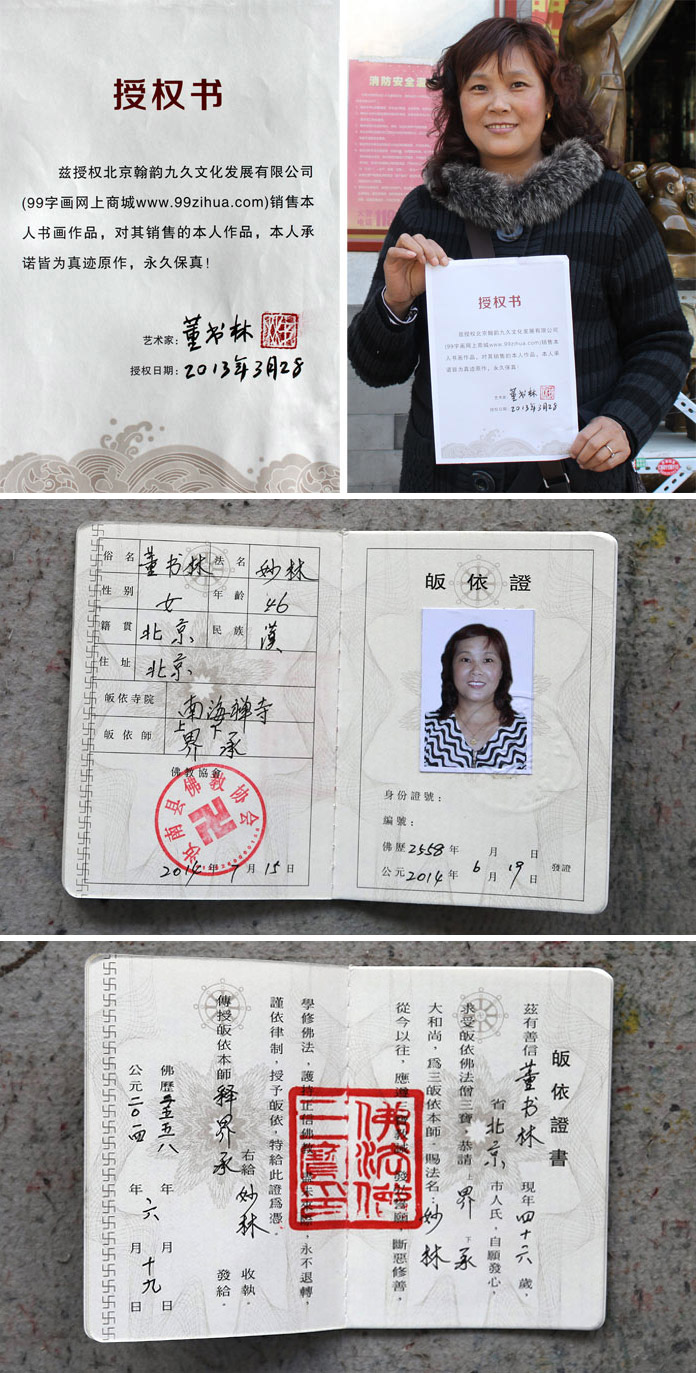 授权书
兹授权北京翰韵九久文化发展有限公司
(99字画网上商城www.99zihua.com)销售本
人书画作品，对其销售的本人作品，本人承
诺皆为真迹原作，永久保真！
艺术家：董书林
授权日期：2013年3月28
消防安全
授权书
兹授权北京翰韵九久文化发展有限公司
(99字画网上商城www.99zihua.com)销售本
人书画作品，对其销售的本人作品，本人承
诺皆为真迹原作，永久保真！
艺术家：董书林
授权日期：2013年3月28
俗名 董书林 法名 妙林
性别 女 年齡 46
籍貫 北京 民族 漢
住址 北京
皈依寺院 南海禅寺
皈依師 上界下承
佛教協會
南县佛教协会
2014年7月15日
皈依證
身份證號：
編號：
佛歷2558年 月 日
公元2014年6月19日 發證
皈依證書
茲有善信董书林 現年四十六歲，
省北京市人氏，自願發心，
求受皈依佛法僧三寶，恭請上界下承
大和尚，爲三皈依本師。賜法名：妙林
從今以往，應遵 斷惡修善，
佛法僧三寶印
學修佛法，護持正信佛教 永不退轉，
謹依律制，授予皈依，特給此證爲憑。
右給妙林收執。
傳授皈依本師釋界承發給。
佛歷二五五八年 月 日
公元二〇一四年六月十九日